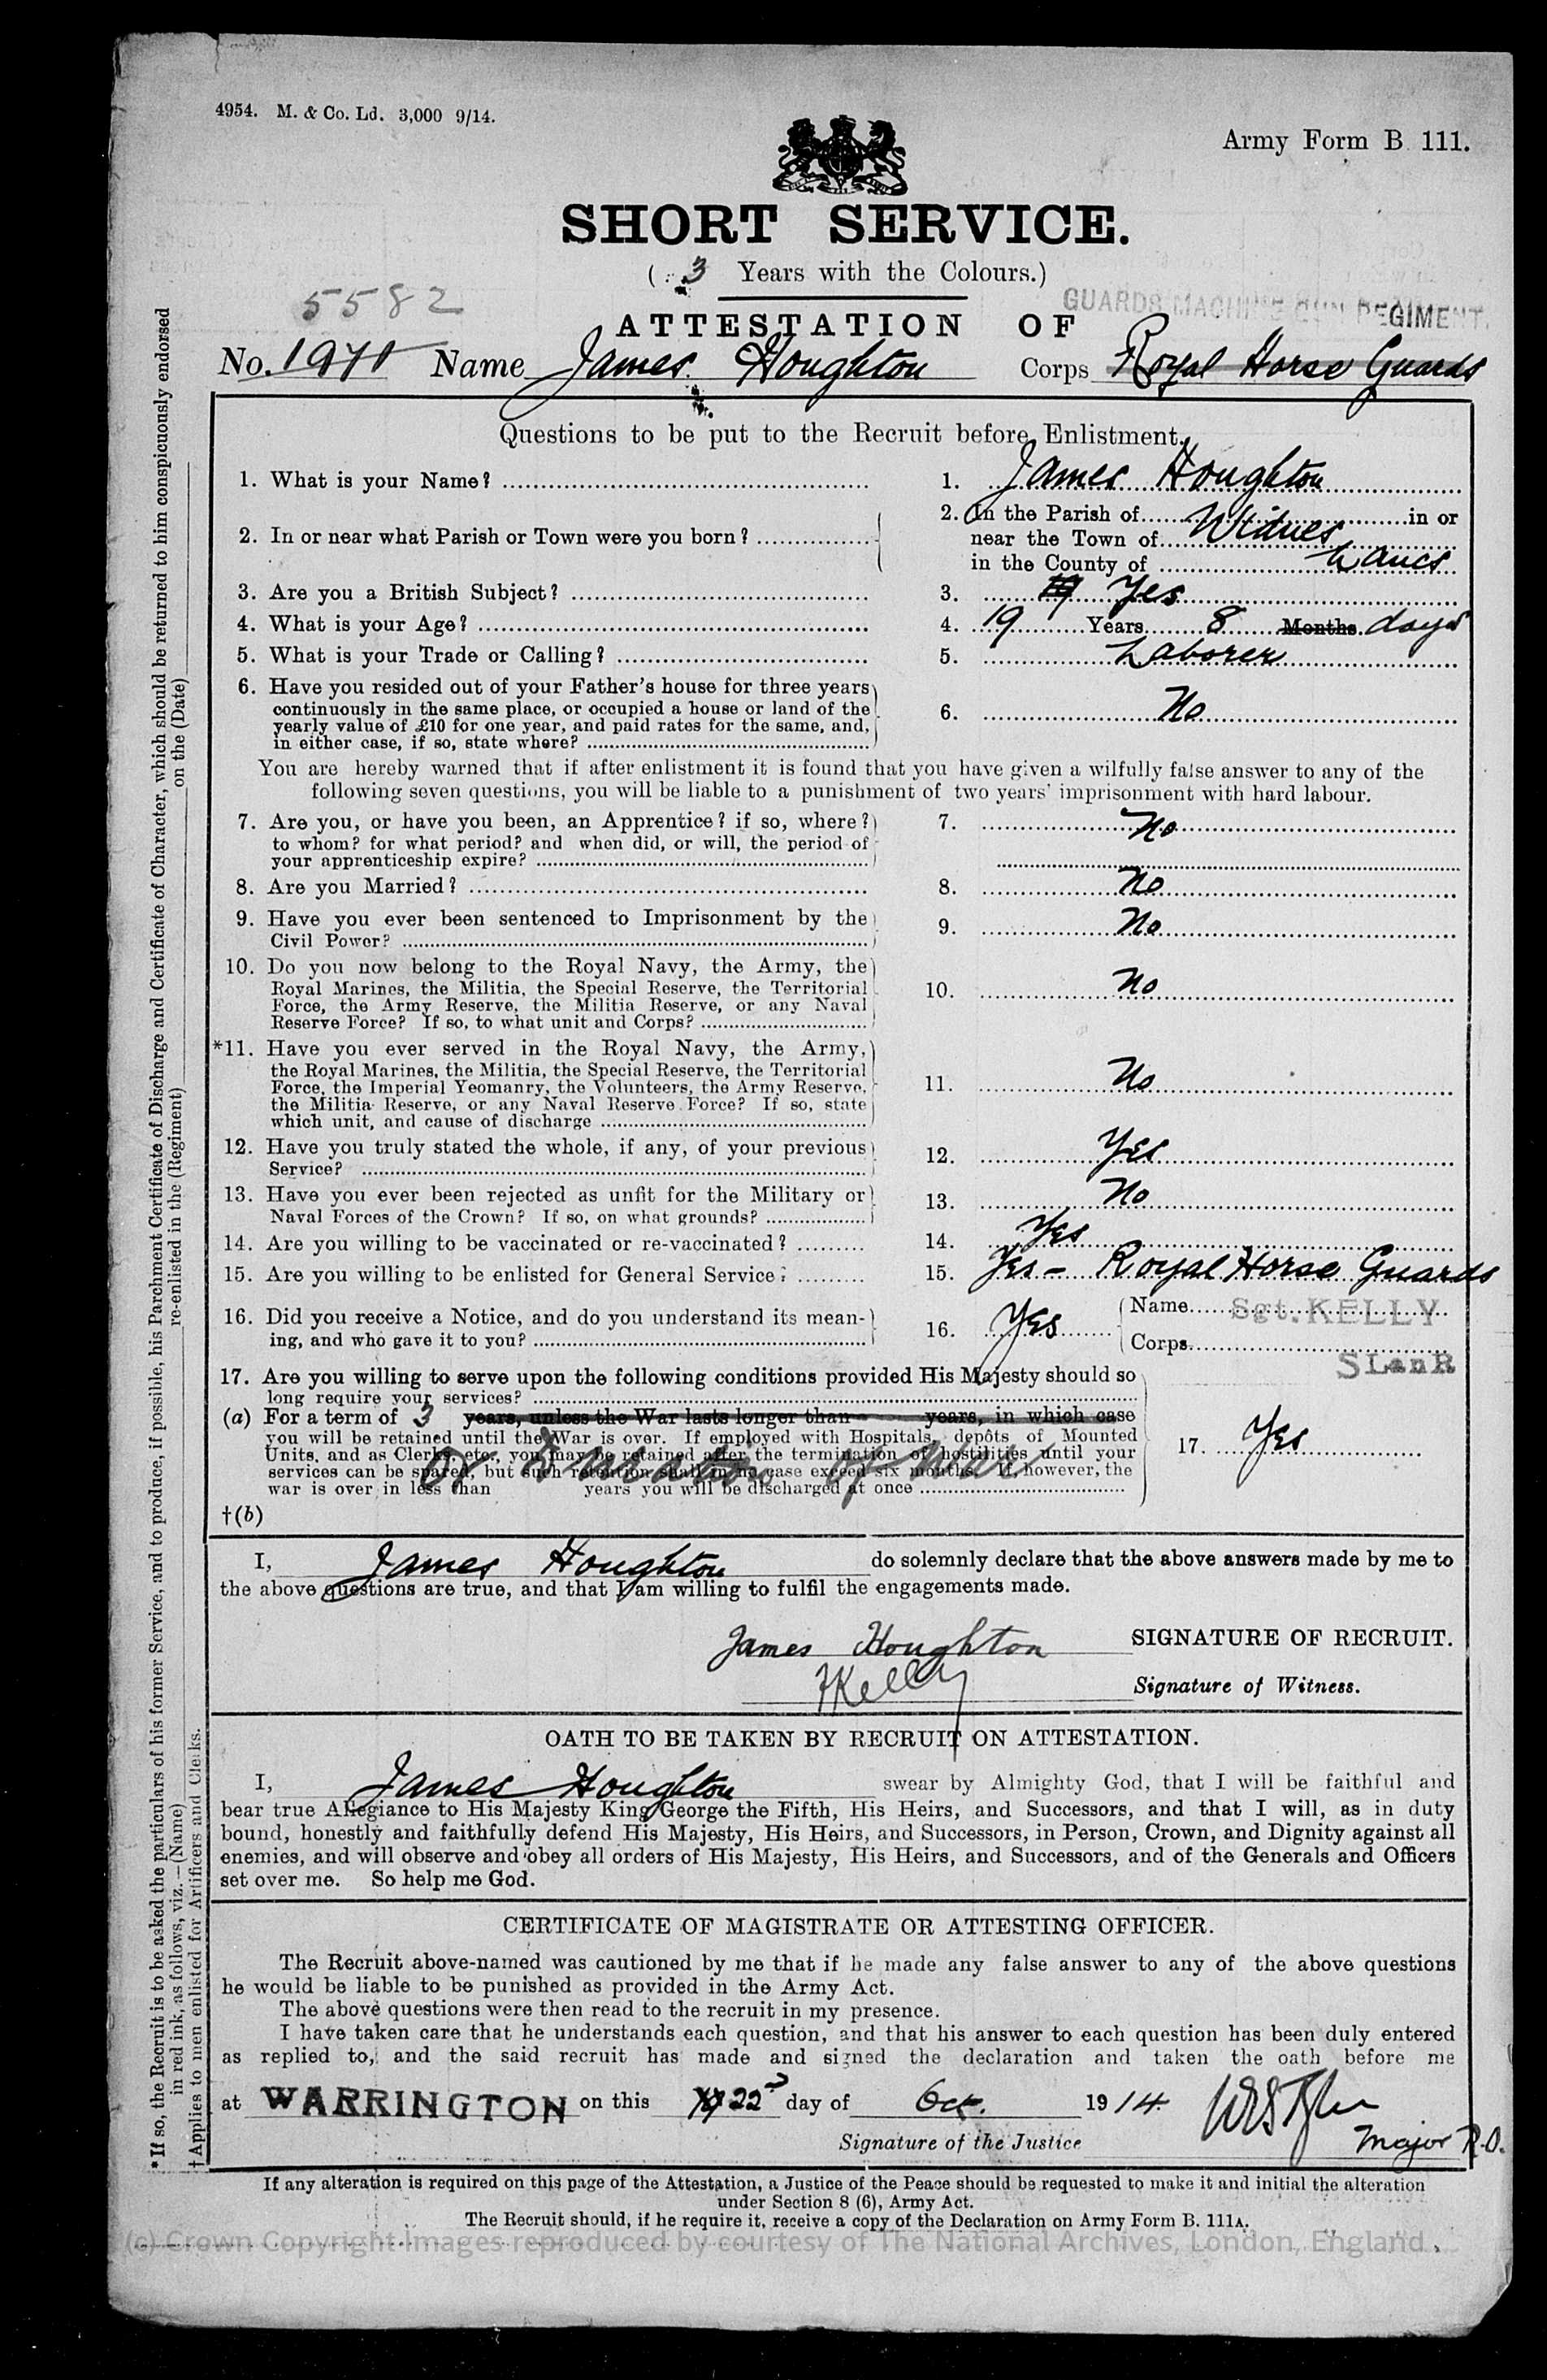 4954. M. & Co. Ld. 3,000 9/14.
Army Form B 111.
SHORT SERVICE.
( 3 Years with the Colours.)
5582
GUARDS MACHINE GUN REGIMENT.
ATTESTATION OF
No. Name James Houghton Corps Royal Horse Guards
Questions to be put to the Recruit before Enlistment.
1. What is your Name? 1. James Houghton
2. In or near what Parish or Town were you born? 2. In the Parish of in or
near the Town of Widnes
in the County of Lancs
3. Are you a British Subject? 3. 19 Yes
4. What is your Age? 4. 19 Years 8 Months days
5. What is your Trade or Calling? 5. Laborer
6. Have you resided out of your Father's house for three years
continuously in the same place, or occupied a house or land of the 6. No
yearly value of £10 for one year, and paid rates for the same, and,
in either case, if so, state where?
You are hereby warned that if after enlistment it is found that you have given a wilfully false answer to any of the
following seven questions, you will be liable to a punishment of two years' imprisonment with hard labour.
7. Are you, or have you been, an Apprentice? if so, where? 7. No
to whom? for what period? and when did, or will, the period of
your apprenticeship expire?
8. Are you Married? 8. No
9. Have you ever been sentenced to Imprisonment by the 9. No
Civil Power?
10. Do you now belong to the Royal Navy, the Army, the
Royal Marines, the Militia, the Special Reserve, the Territorial 10. No
Force, the Army Reserve, the Militia Reserve, or any Naval
Reserve Force? If so, to what unit and Corps?
*11. Have you ever served in the Royal Navy, the Army,
the Royal Marines, the Militia, the Special Reserve, the Territorial
Force, the Imperial Yeomanry, the Volunteers, the Army Reserve, 11. No
the Militia Reserve, or any Naval Reserve Force? If so, state
which unit, and cause of discharge
12. Have you truly stated the whole, if any, of your previous 12. Yes
Service?
13. Have you ever been rejected as unfit for the Military or 13. No
Naval Forces of the Crown? If so, on what grounds?
14. Are you willing to be vaccinated or re-vaccinated? 14. Yes
15. Are you willing to be enlisted for General Service? 15. Yes - Royal Horse Guards
16. Did you receive a Notice, and do you understand its mean- 16. Yes Name Sgt. KELLY
ing, and who gave it to you? Corps
S LanR
17. Are you willing to serve upon the following conditions provided His Majesty should so
long require your services?
(a) For a term of 3 years, unless the War lasts longer than years, in which case
you will be retained until the War is over. If employed with Hospitals, depôts of Mounted 17. Yes
Units, and as Clerks, etc., you may be retained after the termination of hostilities until your
or Duration of War
services can be spared, but such retention shall in no case exceed six months. If, however, the
war is over in less than years you will be discharged at once
†(b)
I, James Houghton do solemnly declare that the above answers made by me to
the above questions are true, and that I am willing to fulfil the engagements made.
James Houghton SIGNATURE OF RECRUIT.
FKelly Signature of Witness.
OATH TO BE TAKEN BY RECRUIT ON ATTESTATION.
I, James Houghton swear by Almighty God, that I will be faithful and
bear true Allegiance to His Majesty King George the Fifth, His Heirs, and Successors, and that I will, as in duty
bound, honestly and faithfully defend His Majesty, His Heirs, and Successors, in Person, Crown, and Dignity against all
enemies, and will observe and obey all orders of His Majesty, His Heirs, and Successors, and of the Generals and Officers
set over me. So help me God.
CERTIFICATE OF MAGISTRATE OR ATTESTING OFFICER.
The Recruit above-named was cautioned by me that if he made any false answer to any of the above questions
he would be liable to be punished as provided in the Army Act.
The above questions were then read to the recruit in my presence.
I have taken care that he understands each question, and that his answer to each question has been duly entered
as replied to, and the said recruit has made and signed the declaration and taken the oath before me
at WARRINGTON on this 22 day of Oct. 1914.
Signature of the Justice Major R.O.
If any alteration is required on this page of the Attestation, a Justice of the Peace should be requested to make it and initial the alteration
under Section 8 (6), Army Act.
The Recruit should, if he require it, receive a copy of the Declaration on Army Form B. 111A.
(c) Crown Copyright Images reproduced by courtesy of The National Archives, London, England
*If so, the Recruit is to be asked the particulars of his former Service, and to produce, if possible, his Parchment Certificate of Discharge and Certificate of Character, which should be returned to him conspicuously endorsed
in red ink, as follows, viz.—(Name) re-enlisted in the (Regiment) on the (Date)
†Applies to men enlisted for Artificers and Clerks.